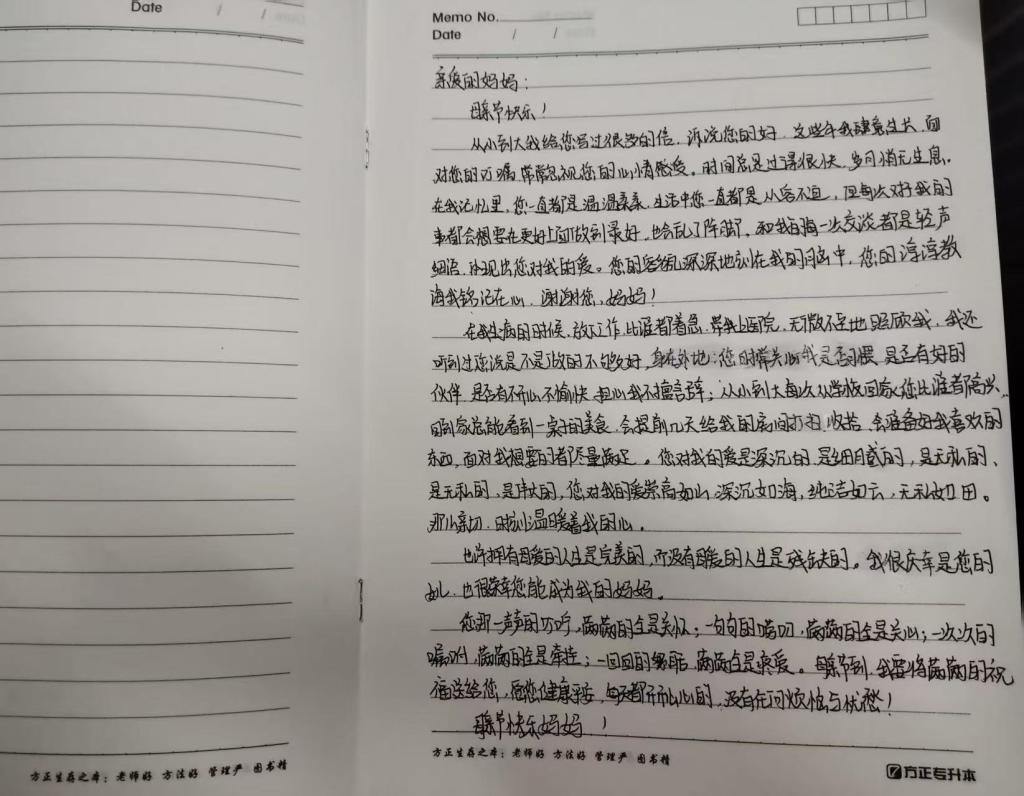 Date / /
Memo No.
Date / /
亲爱的妈妈：
母亲节快乐！
从小到大我给您写过很多的信，诉说您的好，这些年我肆意生长，面
对您的叮嘱常常忽视您的心情感受。时间总是过得很快，岁月悄无生息，
在我记忆里，您一直都是温温柔柔，生活中您一直都是从容不迫，但每次对于我的
事都会想要在更好上面做到最好，也会乱了阵脚，和我的每一次交谈都是轻声
细语，体现出您对我的爱。您的容貌深深地刻在我的脑海中，您的谆谆教
诲我铭记在心，谢谢您，妈妈！
在我生病的时候，放下工作，比谁都着急，带我上医院，无微不至地照顾我，我还
听到过您说是不是做的不够好，身在外地：您时常关心我是否习惯，是否有好的
伙伴，是否有不开心不愉快，担心我不擅言辞；从小到大每次从学校回家您比谁都高兴，
回到家总能看到一桌子的美食，会提前几天给我的房间打扫，收拾，会准备好我喜欢的
东西，面对我想要的都尽量满足。您对我的爱是深沉的，是细腻的，是无私的、
是无私的，是伟大的，您对我的爱崇高如山，深沉如海，纯洁如云，无私如田。
那么亲切，时刻温暖着我的心。
也许拥有母爱的人生是完美的，而没有母爱的人生是残缺的。我很庆幸是您的
女儿，也很荣幸您能成为我的妈妈。
您那一声声的叮咛，满满的全是关怀；一句句的唠叨，满满的全是关心；一次次的
嘱咐，满满的全是牵挂；一回回的，满满全是亲爱。母亲节到，我要将满满的祝
福送给您，愿您健康平安，每天都开开心心的，没有任何烦恼与忧愁！
母亲节快乐妈妈！
方正生存之本：老师好 方法好 管理严 图书精
方正生存之本：老师好 方法好 管理严 图书精
方正专升本